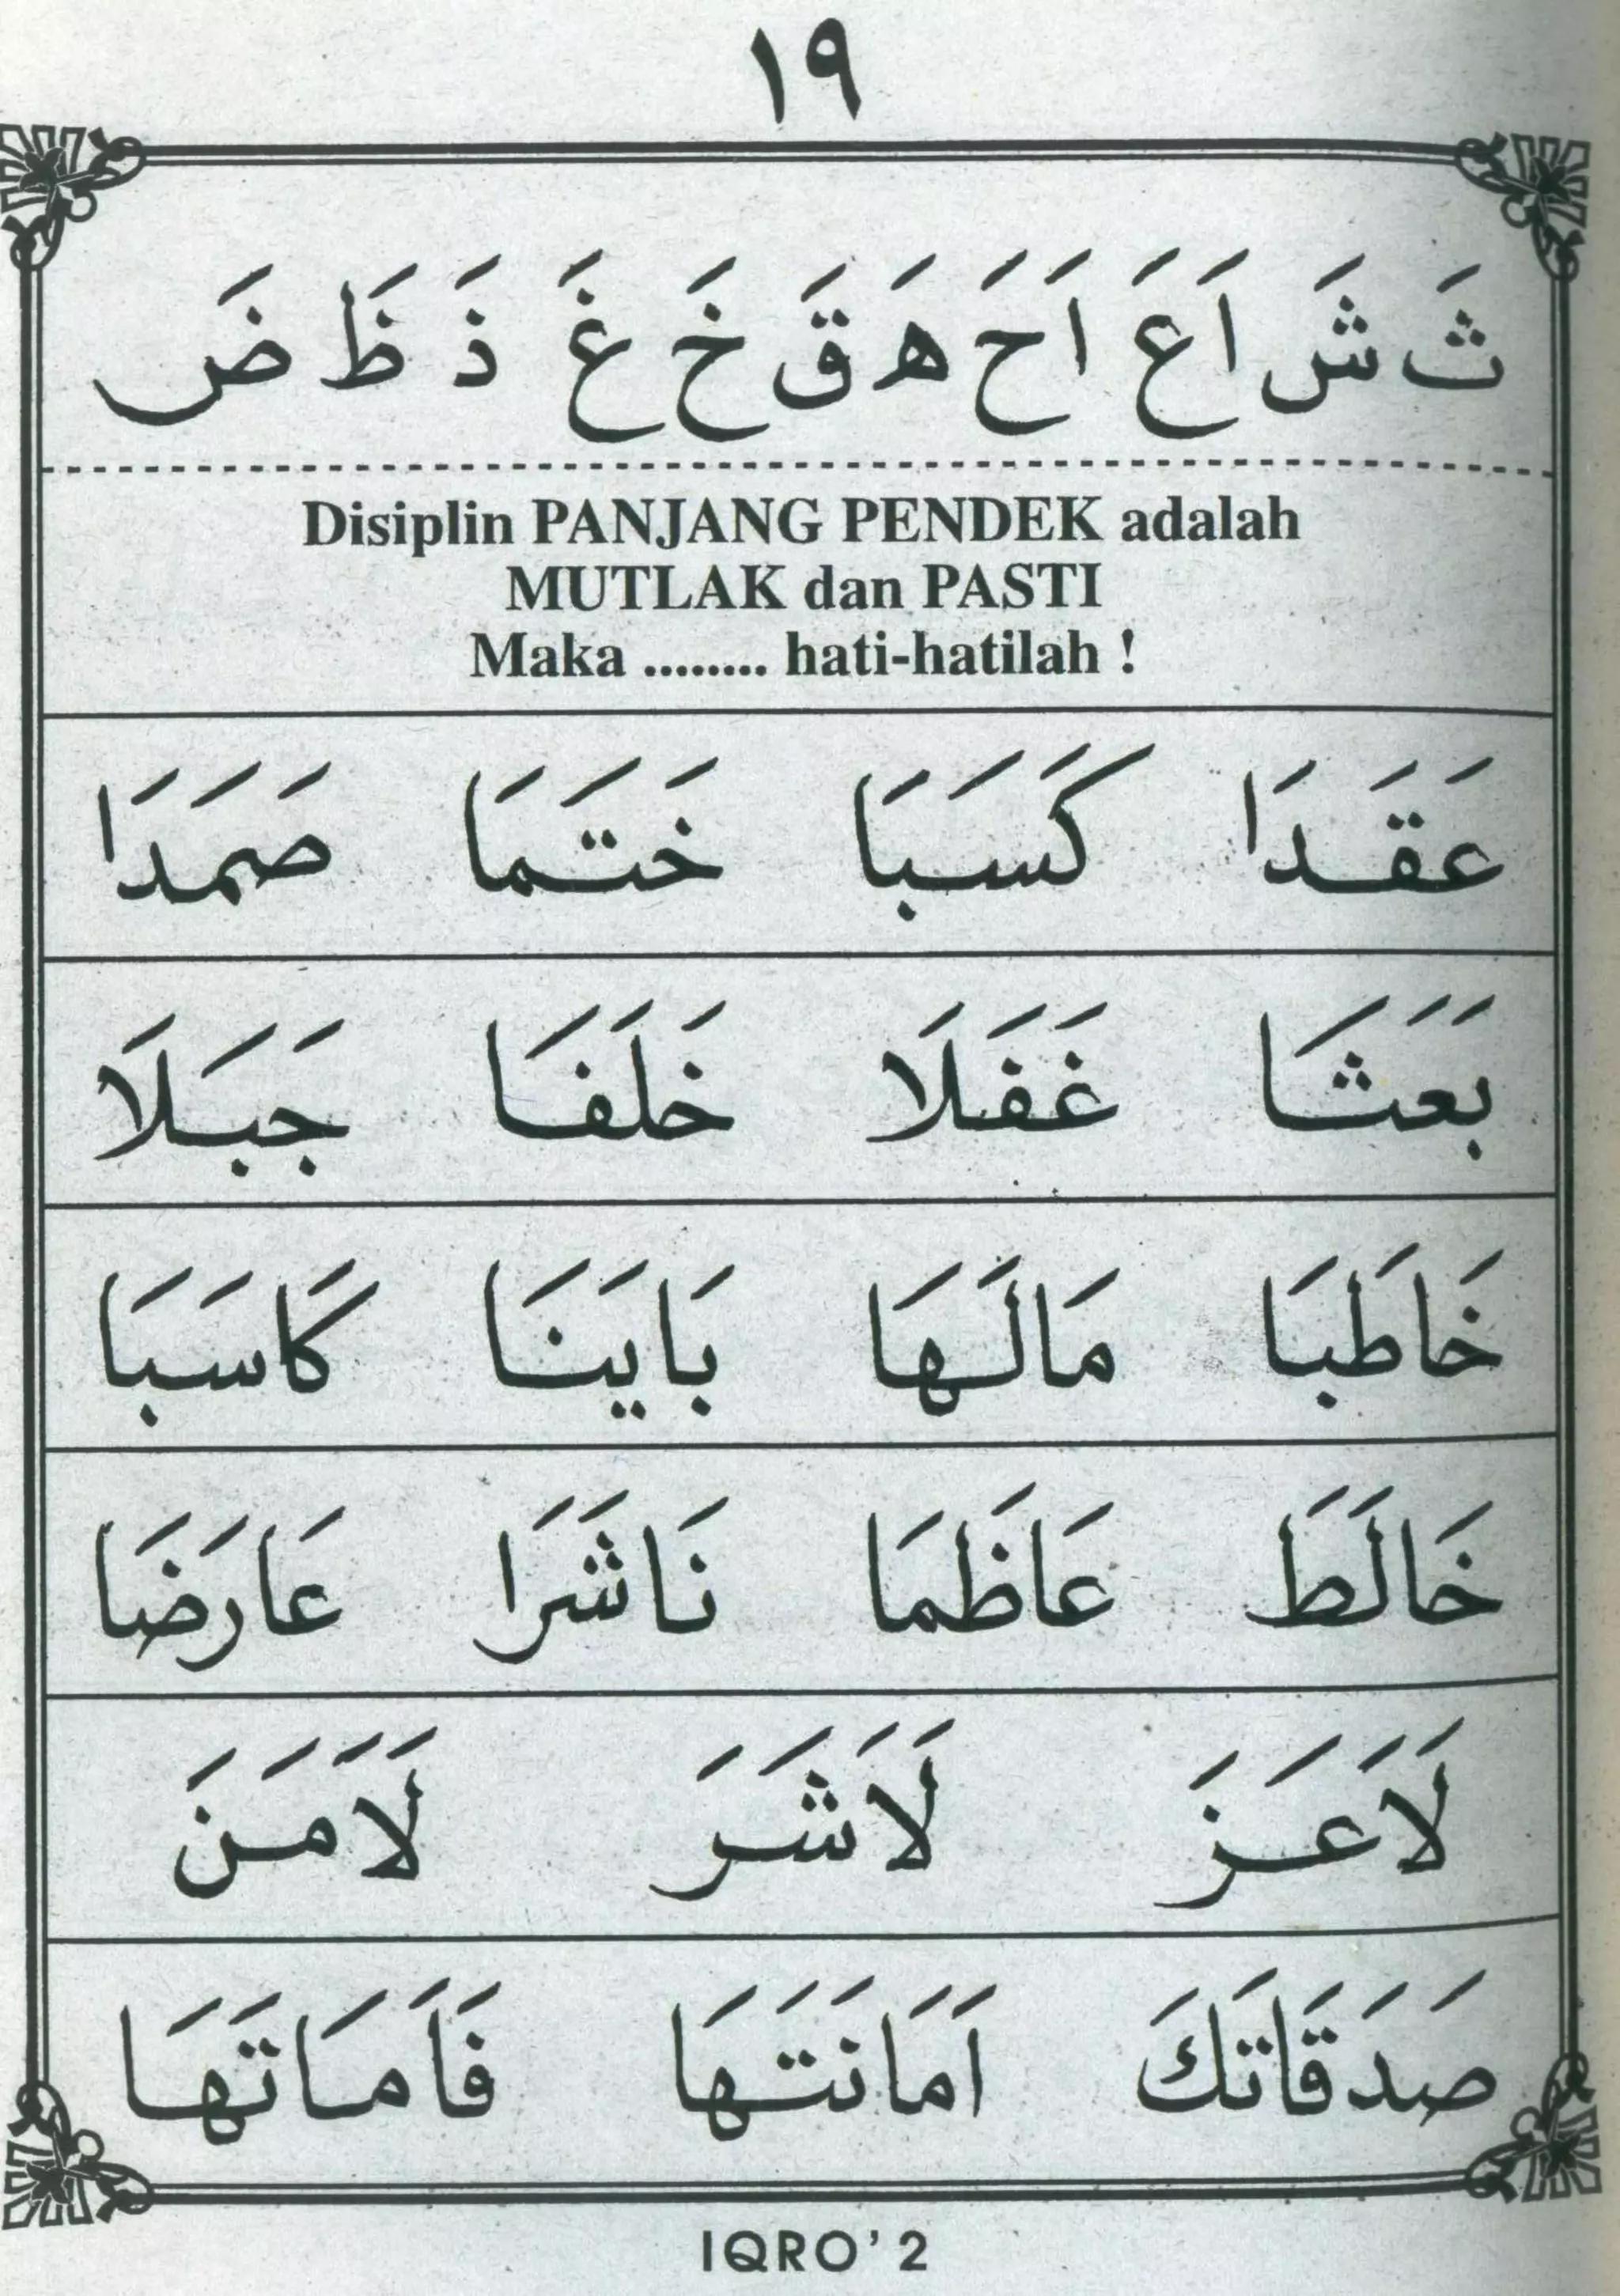 ١٩
ثَ شَ اَ عَ اَ حَ هَ قَ خَ غَ ذَ ظَ ضَ
Disiplin PANJANG PENDEK adalah
MUTLAK dan PASTI
Maka ........ hati-hatilah !
عَقَدَا كَسَبَا خَتَمَا صَمَدَا
بَعَثَا غَفَلَا خَلَفَا جَبَلَا
خَاطَبَا مَالَهَا بَايَنَا كَاسَبَا
خَالَطَ عَاظَمَا نَاشَرَا عَارَضَا
لَاَعَزَ لَاَشَرَ لَاَمَنَ
صَدَقَاتَكَ اَمَانَتَهَا فَاَمَاتَهَا
IQRO' 2